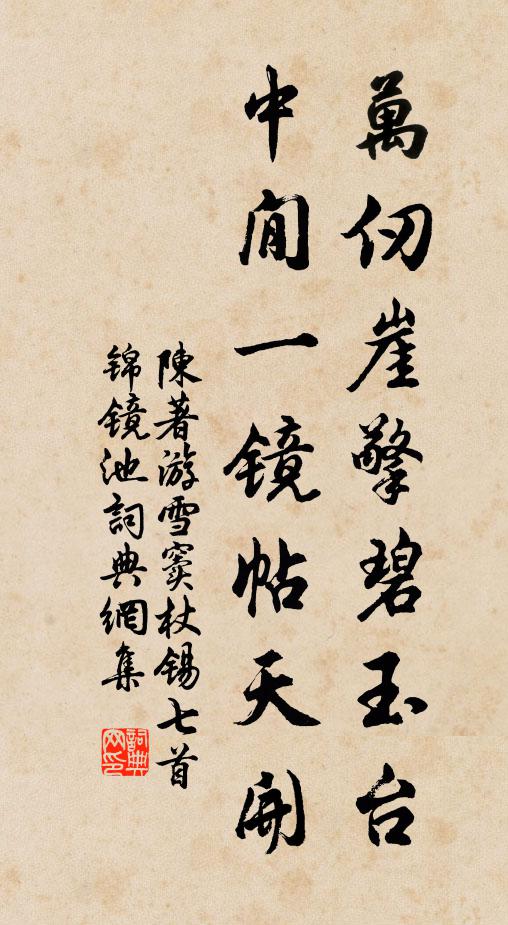 萬仞崖擎碧玉台
中間一镜帖天開
陳著游雪窦杖锡七首
锦镜池詞典網集
詞典网印